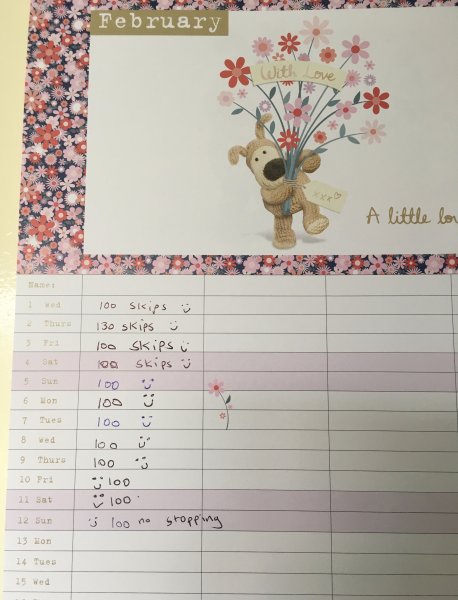 February
With Love
xxx
A little lov
Name:
1 Wed 100 skips
2 Thurs 130 skips
3 Fri 100 skips
4 Sat 100 skips
5 Sun 100
6 Mon 100
7 Tues 100
8 Wed 100
9 Thurs 100
10 Fri 100
11 Sat 100
12 Sun 100 no stopping
13 Mon
14 Tues
15 Wed